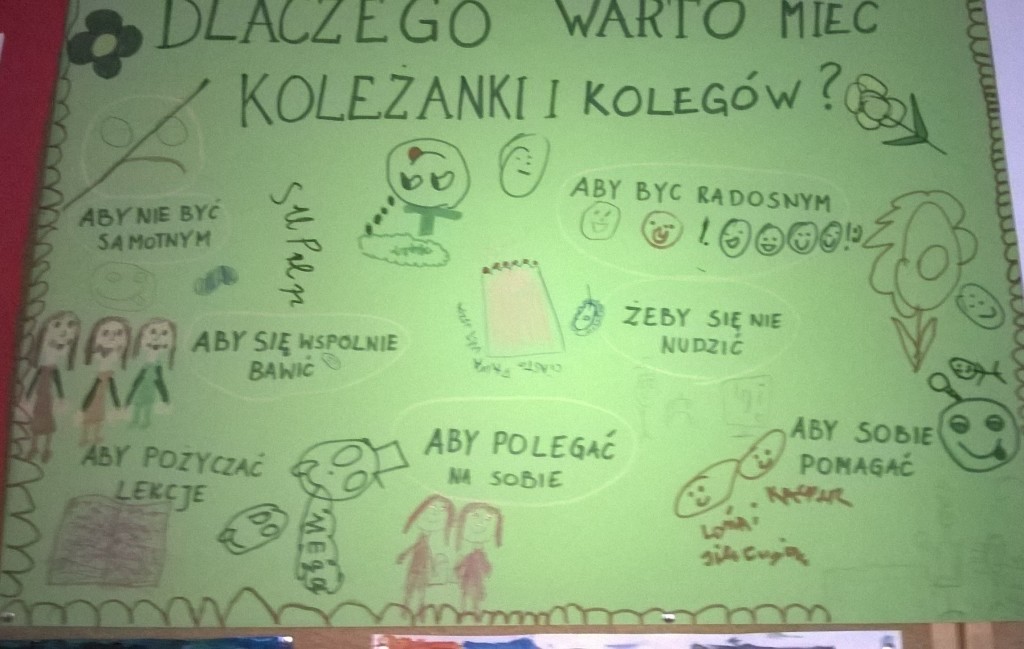 DLACZEGO WARTO MIEĆ
KOLEŻANKI I KOLEGÓW?
ABY NIE BYĆ
SAMOTNYM
ABY BYC RADOSNYM
! !?
ABY SIĘ WSPOLNIE
BAWIĆ
ŻEBY SIĘ NIE
NUDZIĆ
CIASTO
ABY POŻYCZAĆ
LEKCJE
ABY POLEGAĆ
NA SOBIE
ABY SOBIE
POMAGAĆ
MEGA
KACPER